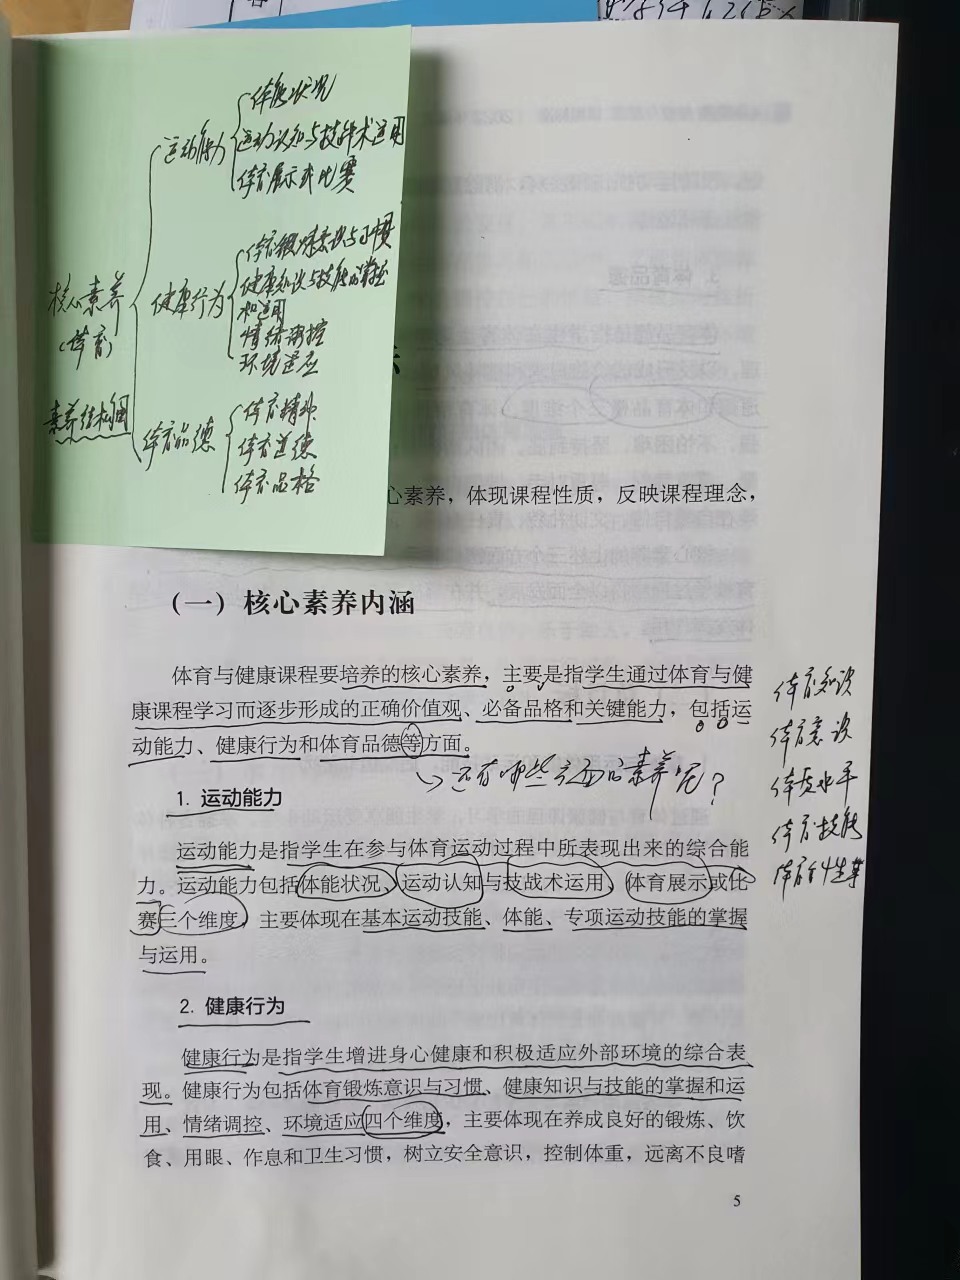 体能状况
运动能力
运动认知与技战术运用
体育展示或比赛
体育锻炼意识与习惯
核心素养
(体育)
健康行为
健康知识与技能的掌握
和运用
情绪调控
环境适应
素养结构图
体育品德
体育精神
体育道德
体育品格
心素养，体现课程性质，反映课程理念，
（一）核心素养内涵
体育与健康课程要培养的核心素养，主要是指学生通过体育与健
康课程学习而逐步形成的正确价值观、必备品格和关键能力，包括运
动能力、健康行为和体育品德等方面。
还有哪些方面的素养呢？
体育知识
体育意识
体质水平
体育技能
体育个性等
1. 运动能力
运动能力是指学生在参与体育运动过程中所表现出来的综合能
力。运动能力包括体能状况、运动认知与技战术运用、体育展示或比
赛三个维度，主要体现在基本运动技能、体能、专项运动技能的掌握
与运用。
2. 健康行为
健康行为是指学生增进身心健康和积极适应外部环境的综合表
现。健康行为包括体育锻炼意识与习惯、健康知识与技能的掌握和运
用、情绪调控、环境适应四个维度，主要体现在养成良好的锻炼、饮
食、用眼、作息和卫生习惯，树立安全意识，控制体重，远离不良嗜
5